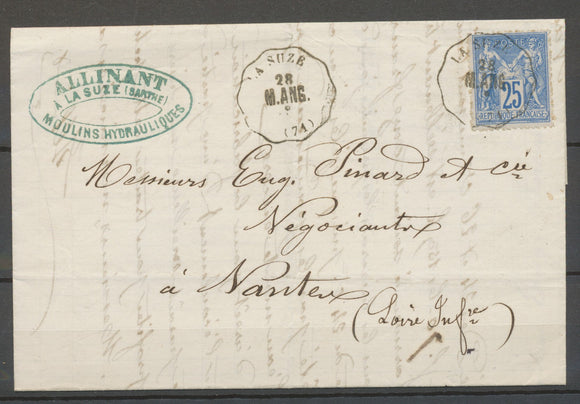 ALLINANT
A LA SUZE (SARTHE)
MOULINS HYDRAULIQUES
LA SUZE
28
M.ANG.
(71)
LA SUZE
28
M.ANG.
POSTE
25
REPUBLIQUE FRANÇAISE
Messieurs Eug. Pinard et Cie
Négociants
à Nantes
(Loire Infre)